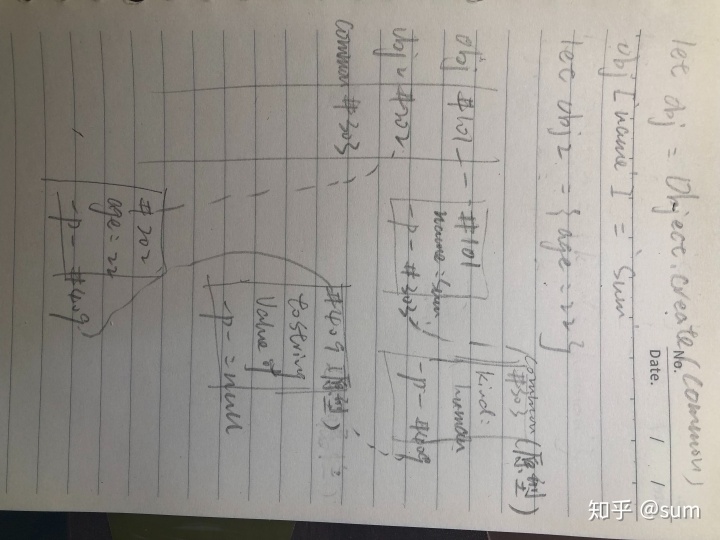 No.
Date.
let obj = Object.create(common)
obj['name'] = 'sum'
let obj2 = {age = 22}
obj #101
obj2 #202
common #303
#101
name = sum
-p- #303
common(原型)
#303
kind:
human
-p- #409
#409(原型)
toString
Value of
-p- = null
#202
age = 22
-p- #409
知乎 @sum